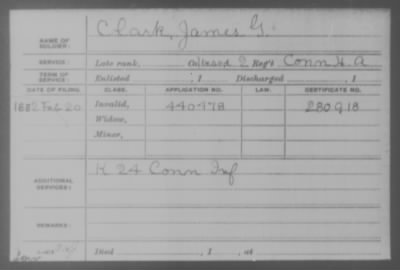 NAME OF SOLDIER: Clark, James G.
SERVICE: Late rank, Regt Conn H A
TERM OF SERVICE: Enlisted , 1 Discharged , 1
DATE OF FILING. CLASS. APPLICATION NO. LAW. CERTIFICATE NO.
1882 Feb 20 Invalid, 440478 280918
Widow,
Minor,
ADDITIONAL SERVICES: K 24 Conn Inf
REMARKS:
Died , 1 , at